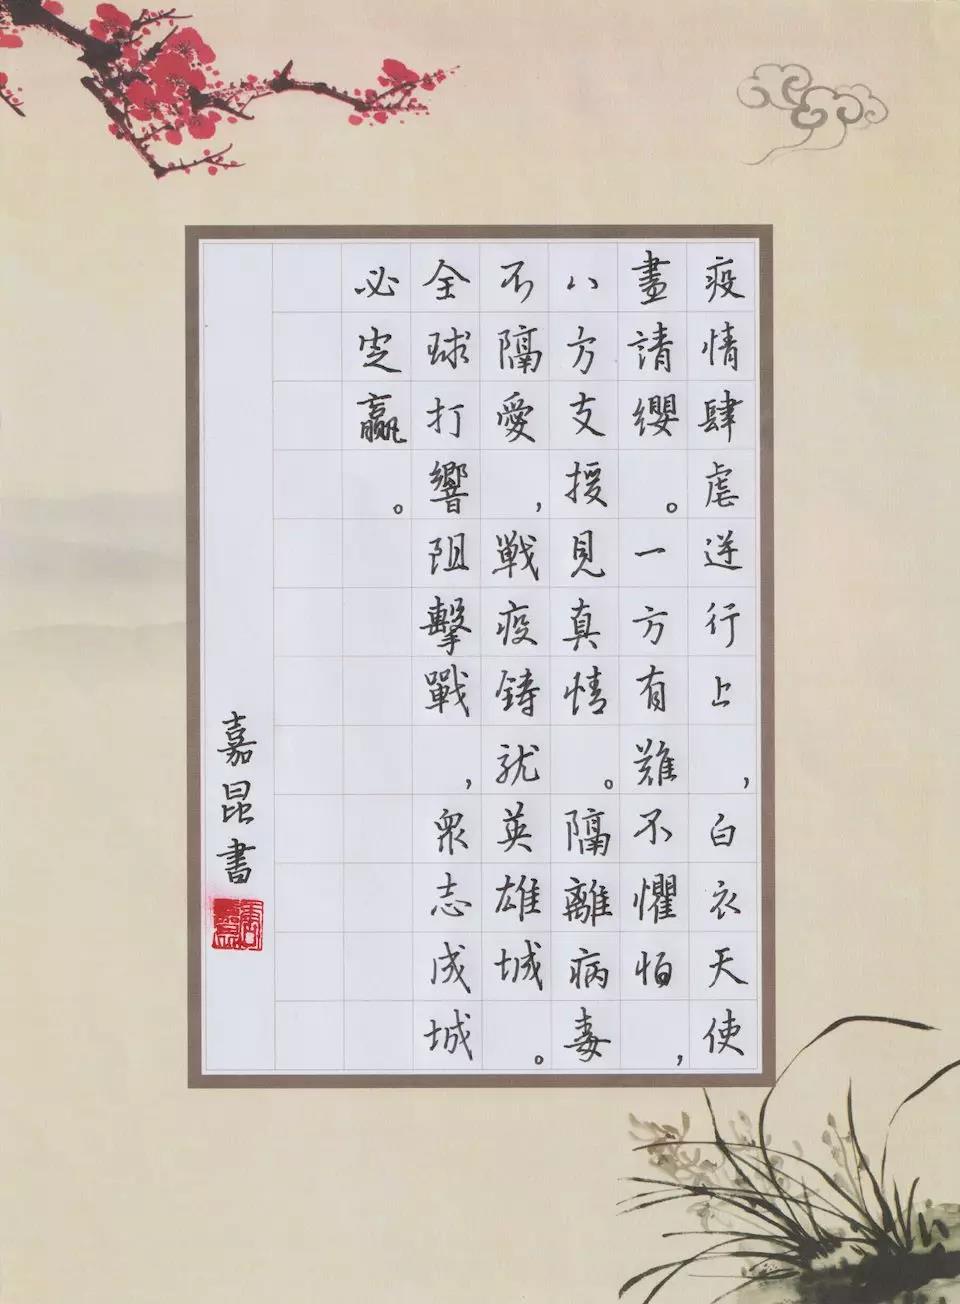 疫情肆虐逆行上，白衣天使
盡請纓。一方有難不懼怕，
八方支援見真情。隔離病毒
不隔愛，戦疫鋳就英雄城。
全球打響阻擊戰，眾志成城
必定贏。
嘉昆書